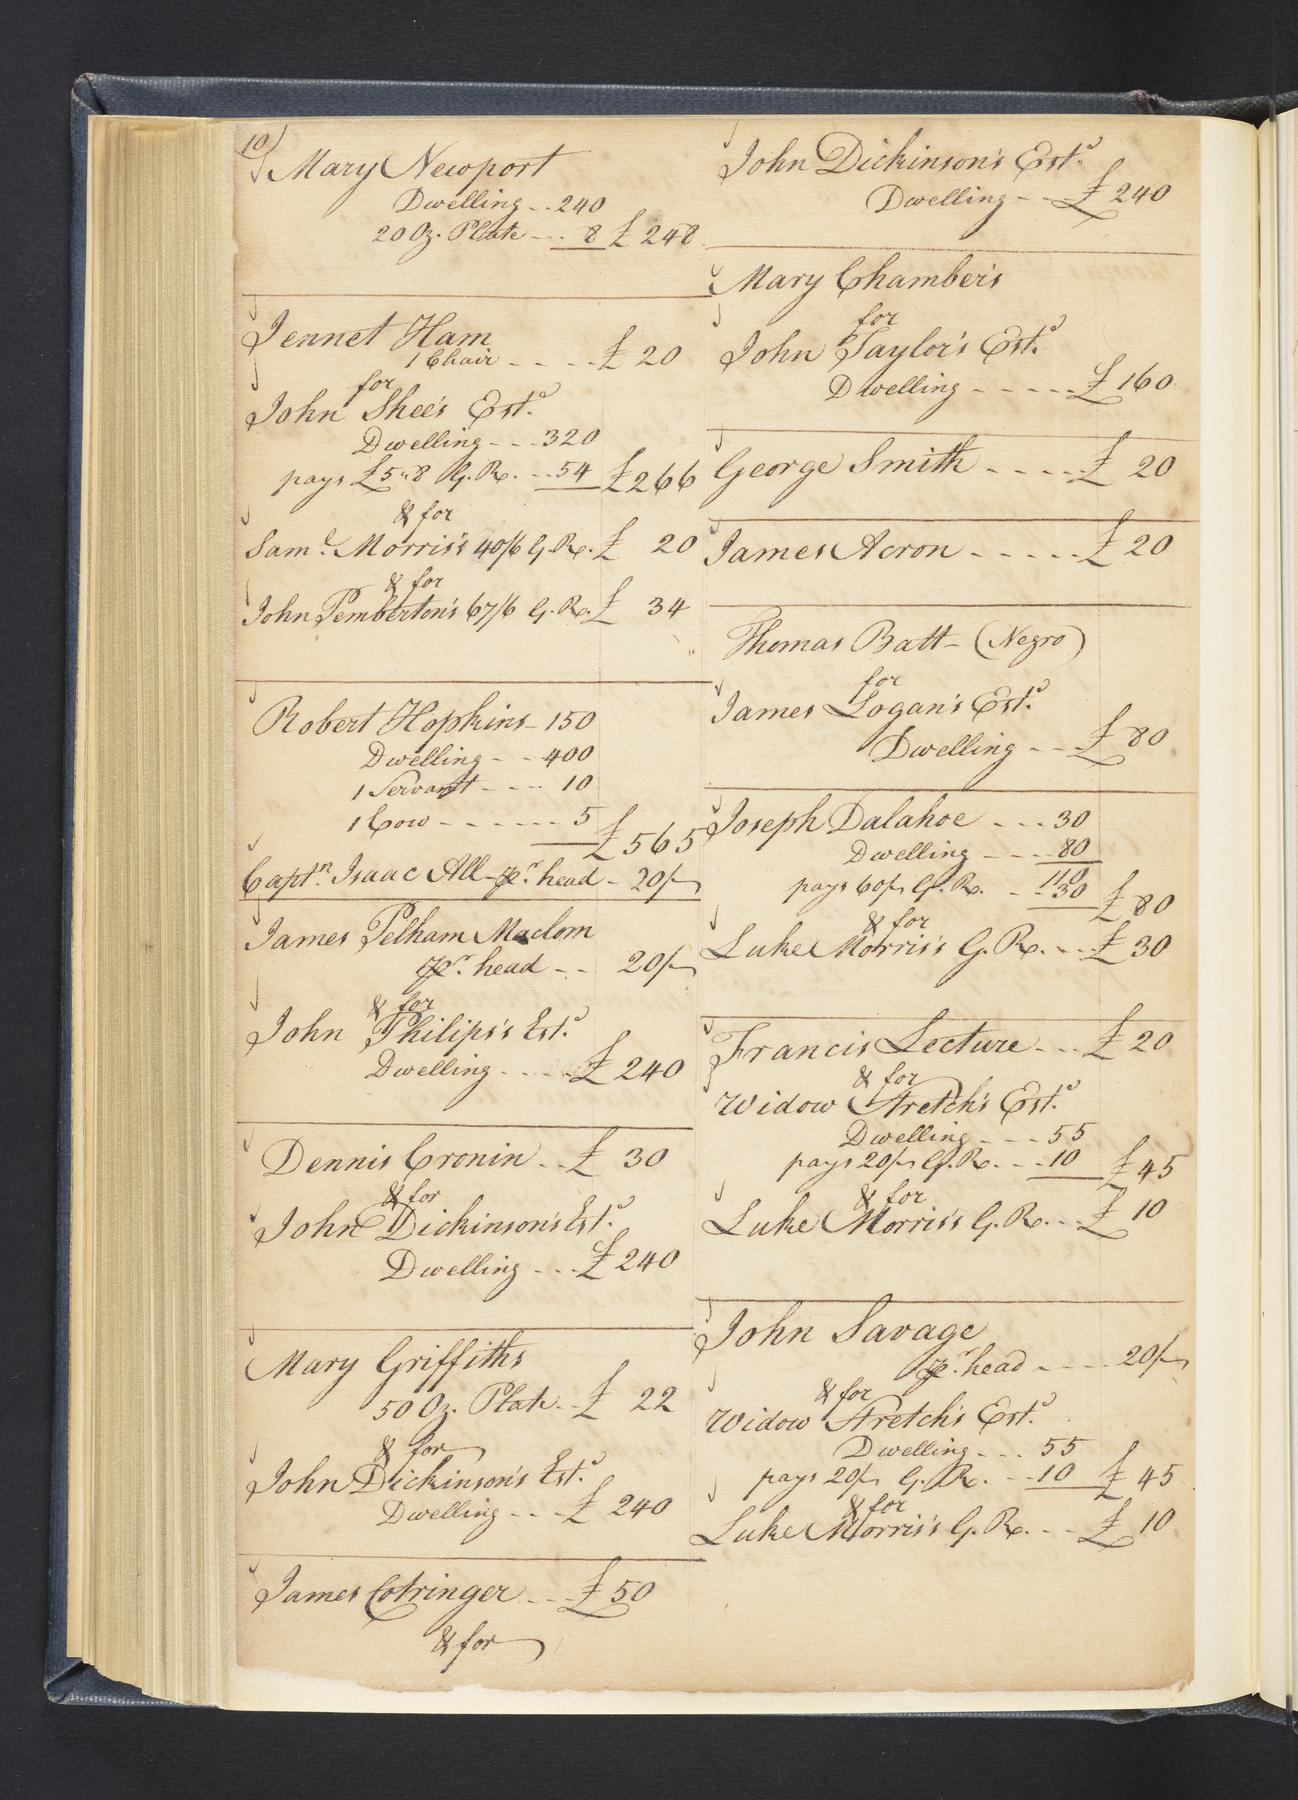 10)
Mary Newport
Dwelling - - 240
20 Oz. Plate - - - 8 £ 248
Jennet Ham
1 Chair - - - - £ 20
for
John Shee's Estᵉ
Dwelling - - - 320
pays £5"8 G.R. - - 54 £266
& for
Samˡ. Morris's 40/6 G.R. £ 20
& for
John Pemberton's 67/6 G.R. £ 34
Robert Hopkins - 150
Dwelling - - 400
1 Servant - - - 10
1 Cow - - - - - - 5
£565
Captⁿ. Isaac All - pʳ. head - 20/-
James Pelham Maclom
pʳ. head - - 20/-
& for
John Philips's Estᵉ
Dwelling - - - - £ 240
Dennis Cronin - - £ 30
& for
John Dickinson's Estᵉ
Dwelling - - - £ 240
Mary Griffiths
50 Oz. Plate - - £ 22
& for
John Dickinson's Estᵉ
Dwelling - - - £ 240
James Cotringer - - - £ 50
& for
John Dickinson's Estᵉ
Dwelling - - £ 240
Mary Chamber's
for
John Taylor's Estᵉ
Dwelling - - - - - £ 160
George Smith - - - - £ 20
James Acron - - - - - £ 20
Thomas Batt - (Negro)
for
James Logan's Estᵉ
Dwelling - - £ 80
Joseph Dalahoe - - - 30
Dwelling - - - - 80
110
pays 60/- G.R. - - 30 £ 80
& for
Luke Morris's G.R. - - £ 30
Francis Lecture - - - £ 20
& for
Widow Stretch's Estᵉ
Dwelling - - - 55
pays 20/- G.R. - - - 10 £ 45
& for
Luke Morris's G.R. - - £ 10
John Savage
pʳ. head - - - - 20/-
& for
Widow Stretch's Estᵉ
Dwelling - - - 55
pays 20/- G.R. - - 10 £ 45
& for
Luke Morris's G.R. - - £ 10